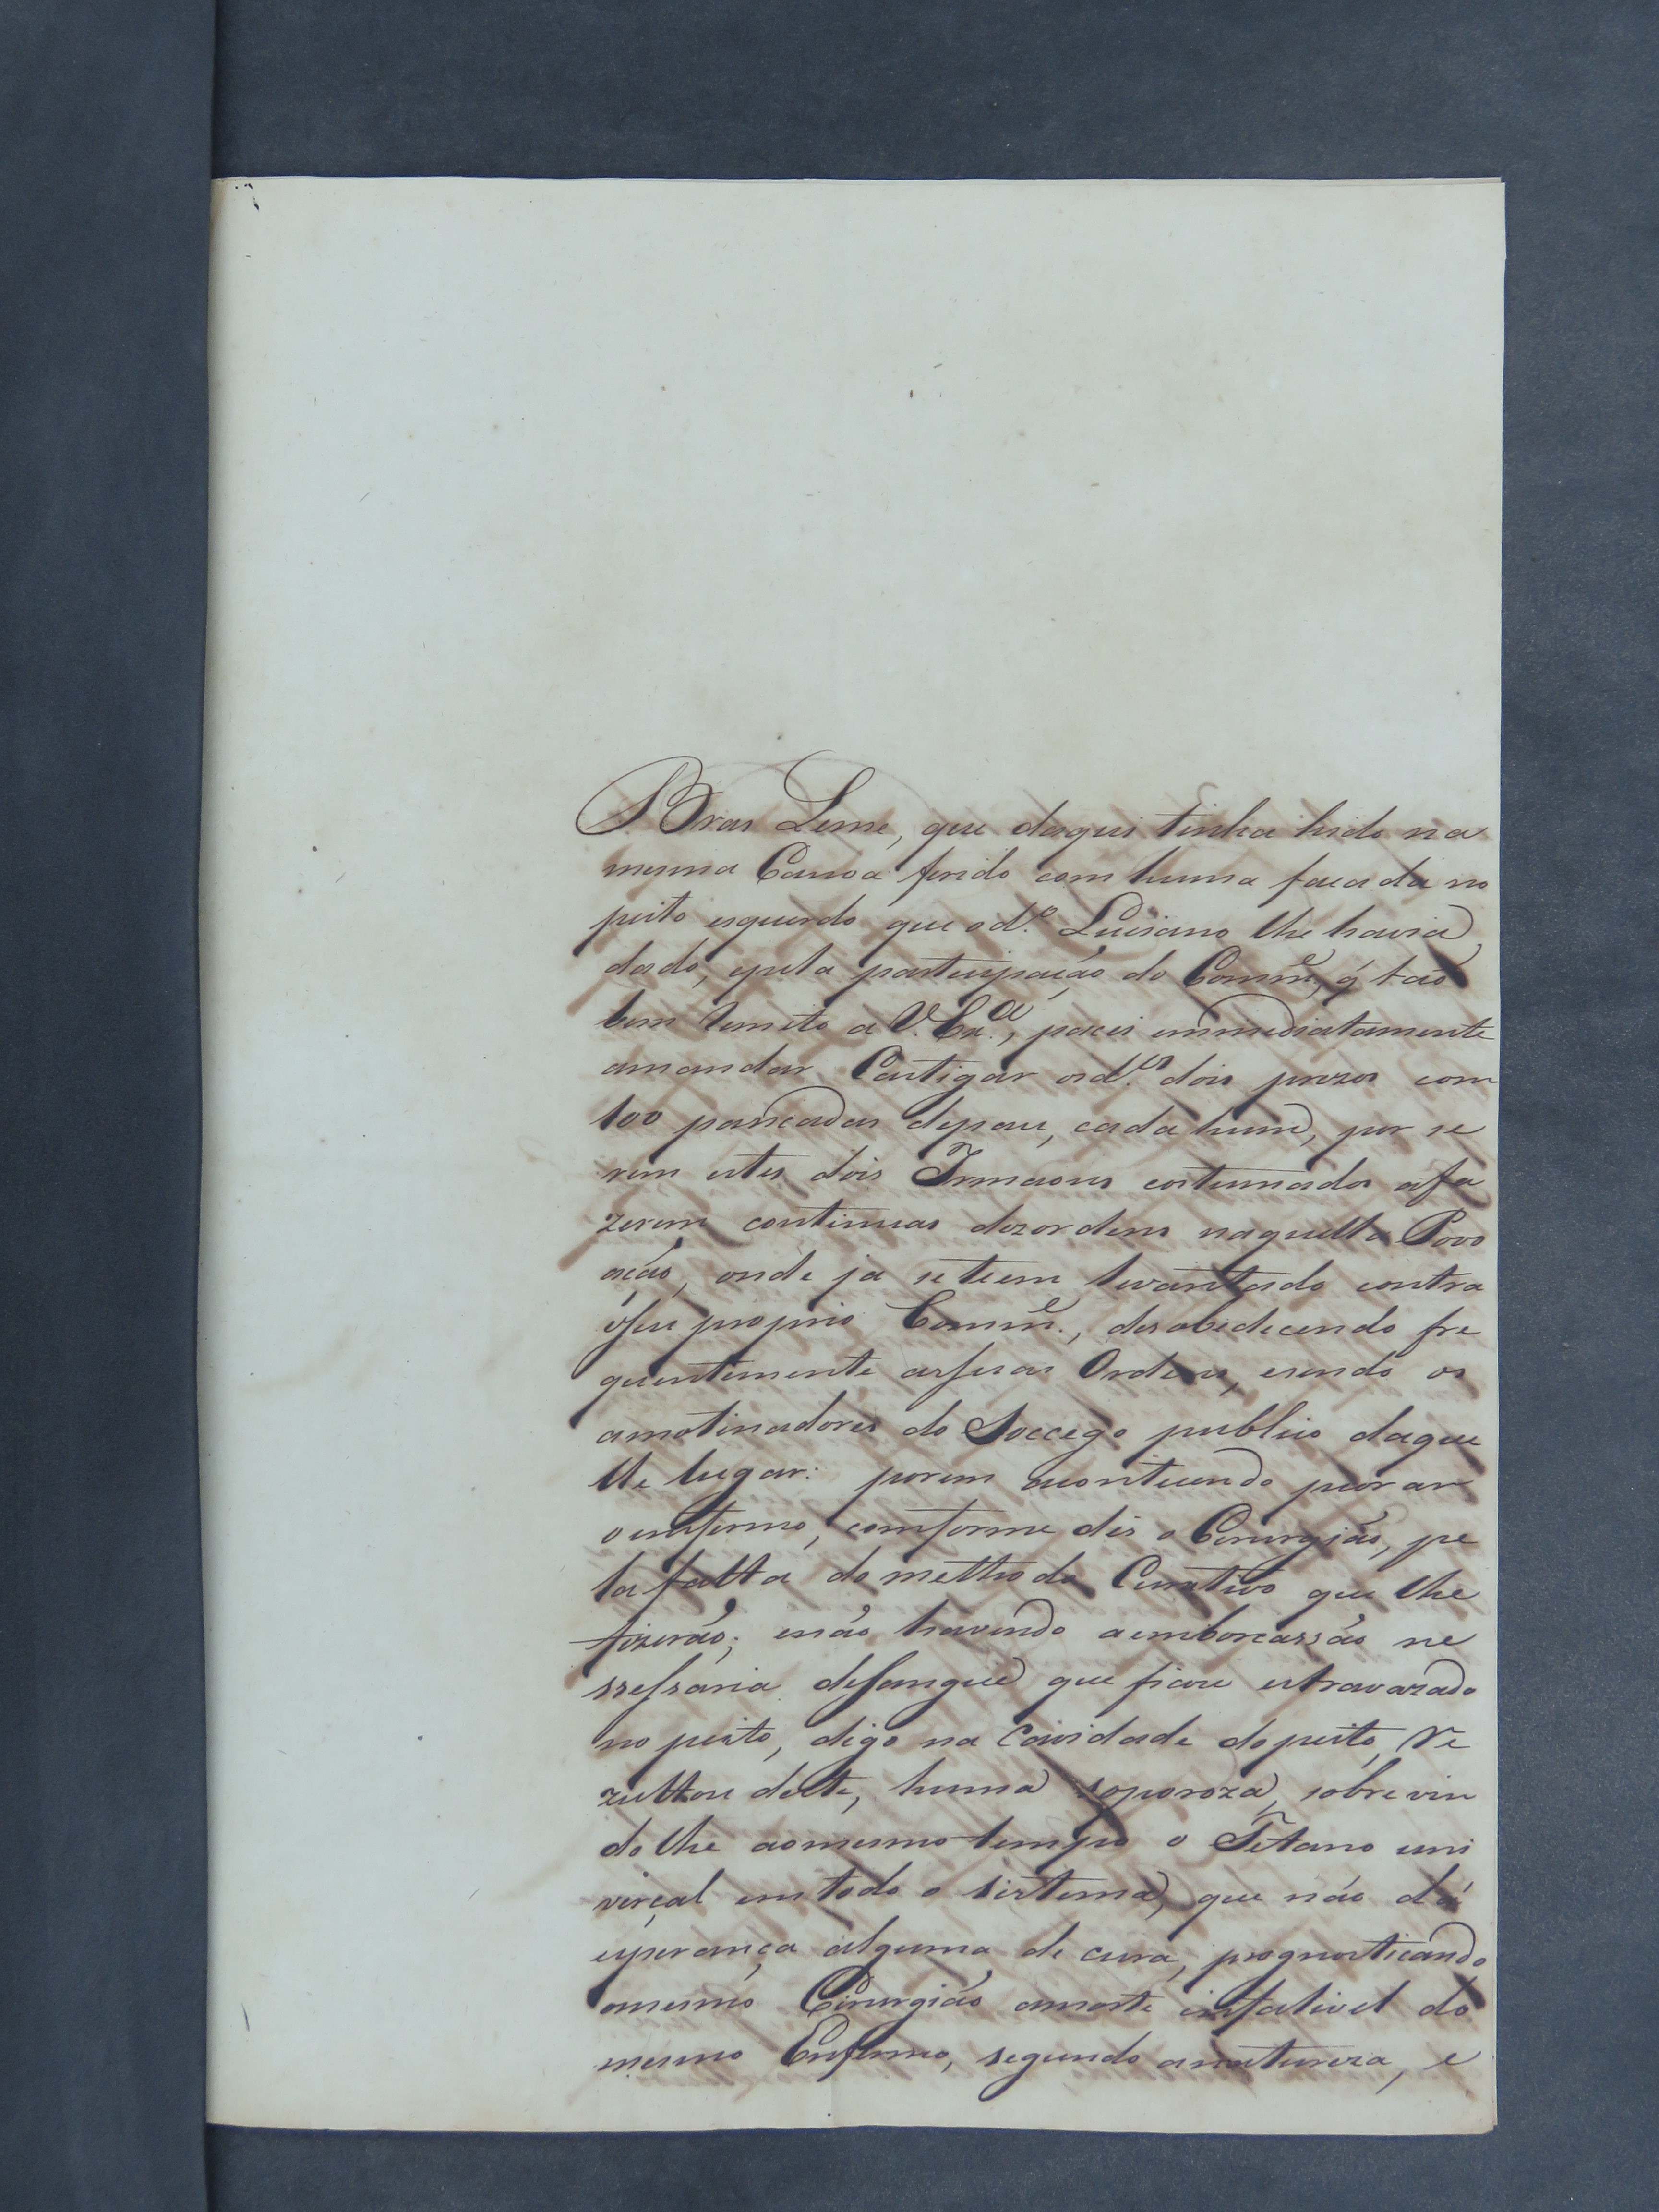 Bras Leme, que daqui tinha hido na
mesma Canoa ferido com huma facada no
peito esquerdo que o d.º Luciano lhe havia
dado, epela participação do Comm.e, q̃ tão
bem remeto a V. Ex.ª, pacei emmediatamente
amandar Castigar osd.os dois prezos com
100 pancadas depau, cada hum, por se
rem estes dois Irmaons costumados afa
zerem continuas dezordens naquella Povo
ação, onde ja seteem levantado contra
óseu proprio Comm.e, desobedecendo fre
quentemente assuas Ordens, esendo os
amotinadores do Soccego publico daque
lle lugar: porem acontecendo piorar
oenfermo, comforme dis o Cirurgião, pe
la falta do methodo Curativo que lhe
fizerão; enão havendo aemborcassão ne
ssessaria desangue que ficou estravazado
no peito, digo na Cavidade dopeito, re
zultou deste, huma soporoza, sobrevin
dolhe aomesmo tempo o Tetano uni
virçal emtodo o sistema, que não dá
esperança alguma de cura, prognosticando
omesmo Cirurgião amorte infalivel do
mesmo Enfermo, segundo anatureza, e